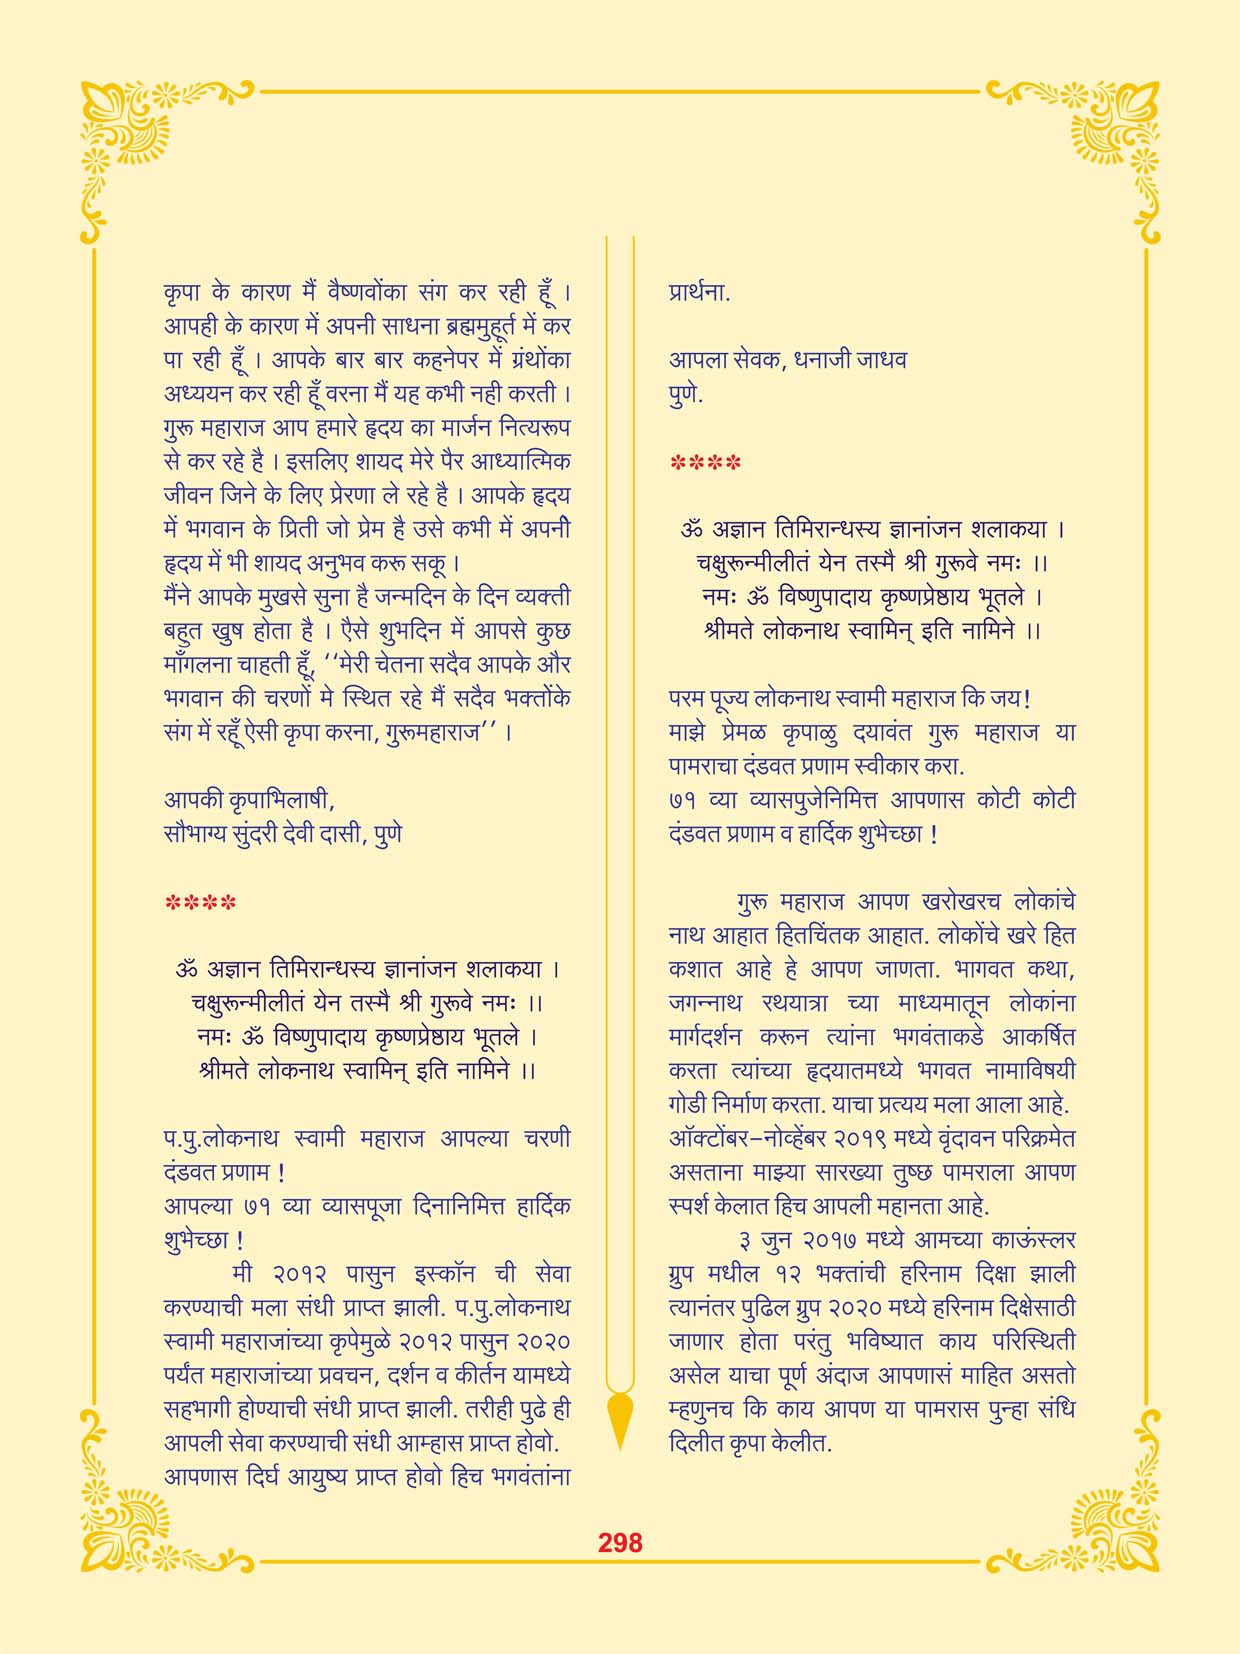 कृपा के कारण मैं वैष्णवोंका संग कर रही हूँ ।
आपही के कारण में अपनी साधना ब्रह्ममुहूर्त में कर
पा रही हूँ । आपके बार बार कहनेपर में ग्रंथोंका
अध्ययन कर रही हूँ वरना मैं यह कभी नही करती ।
गुरू महाराज आप हमारे हृदय का मार्जन नित्यरूप
से कर रहे है । इसलिए शायद मेरे पैर आध्यात्मिक
जीवन जिने के लिए प्रेरणा ले रहे है । आपके हृदय
में भगवान के प्रिती जो प्रेम है उसे कभी में अपनीे
हृदय में भी शायद अनुभव करू सकू ।
मैंने आपके मुखसे सुना है जन्मदिन के दिन व्यक्ती
बहुत खुष होता है । ऐसे शुभदिन में आपसे कुछ
माँगलना चाहती हूँ, ‘‘मेरी चेतना सदैव आपके और
भगवान की चरणों मे स्थित रहे मैं सदैव भक्तोंके
संग में रहूँ ऐसी कृपा करना, गुरूमहाराज’’ ।
आपकी कृपाभिलाषी,
सौभाग्य सुंदरी देवी दासी, पुणे
****
ॐ अज्ञान तिमिरान्धस्य ज्ञानांजन शलाकया ।
चक्षुरून्मीलीतं येन तस्मै श्री गुरूवे नमः ।।
नमः ॐ विष्णुपादाय कृष्णप्रेष्ठाय भूतले ।
श्रीमते लोकनाथ स्वामिन् इति नामिने ।।
प.पु.लोकनाथ स्वामी महाराज आपल्या चरणी
दंडवत प्रणाम !
आपल्या ७१ व्या व्यासपूजा दिनानिमित्त हार्दिक
शुभेच्छा !
मी २०१२ पासुन इस्कॉन ची सेवा
करण्याची मला संधी प्राप्त झाली. प.पु.लोकनाथ
स्वामी महाराजांच्या कृपेमुळे २०१२ पासुन २०२०
पर्यंत महाराजांच्या प्रवचन, दर्शन व कीर्तन यामध्ये
सहभागी होण्याची संधी प्राप्त झाली. तरीही पुढे ही
आपली सेवा करण्याची संधी आम्हास प्राप्त होवो.
आपणास दिर्घ आयुष्य प्राप्त होवो हिच भगवंतांना
प्रार्थना.
आपला सेवक, धनाजी जाधव
पुणे.
****
ॐ अज्ञान तिमिरान्धस्य ज्ञानांजन शलाकया ।
चक्षुरून्मीलीतं येन तस्मै श्री गुरूवे नमः ।।
नमः ॐ विष्णुपादाय कृष्णप्रेष्ठाय भूतले ।
श्रीमते लोकनाथ स्वामिन् इति नामिने ।।
परम पूज्य लोकनाथ स्वामी महाराज कि जय!
माझे प्रेमळ कृपाळु दयावंत गुरू महाराज या
पामराचा दंडवत प्रणाम स्वीकार करा.
७१ व्या व्यासपुजेनिमित्त आपणास कोटी कोटी
दंडवत प्रणाम व हार्दिक शुभेच्छा !
गुरू महाराज आपण खरोखरच लोकांचे
नाथ आहात हितचिंतक आहात. लोकोंचे खरे हित
कशात आहे हे आपण जाणता. भागवत कथा,
जगन्नाथ रथयात्रा च्या माध्यमातून लोकांना
मार्गदर्शन करून त्यांना भगवंताकडे आकर्षित
करता त्यांच्या हृदयातमध्ये भगवत नामाविषयी
गोडी निर्माण करता. याचा प्रत्यय मला आला आहे.
ऑक्टोंबर–नोव्हेंबर २०१९ मध्ये वृंदावन परिक्रमेत
असताना माझ्या सारख्या तुष्छ पामराला आपण
स्पर्श केलात हिच आपली महानता आहे.
३ जुन २०१७ मध्ये आमच्या काऊंस्लर
ग्रुप मधील १२ भक्तांची हरिनाम दिक्षा झाली
त्यानंतर पुढिल ग्रुप २०२० मध्ये हरिनाम दिक्षेसाठी
जाणार होता परंतु भविष्यात काय परिस्थिती
असेल याचा पूर्ण अंदाज आपणासं माहित असतो
म्हणुनच कि काय आपण या पामरास पुन्हा संधि
दिलीत कृपा केलीत.
298